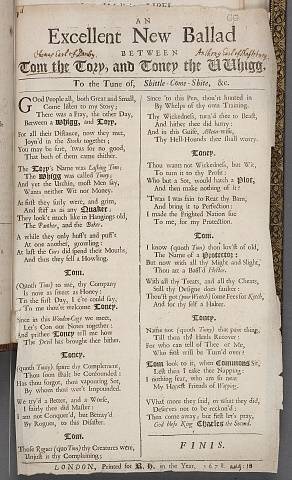 AN
Excellent New Ballad
BETWEEN
Tom the Tory, and Toney the WWhigg.
To the Tune of, Shittle-Come-Shite, &c.
Good People all, both Great and Small,
Come listen to my Story;
There was a fray, the other Day,
Between a Whigg, and Tory.
For all their Distance, now they meet,
Joyn'd in the Stocks together;
You may be sure, 'twas for no good,
That both of them came thither.
The Tory's Name was Tom;
The Whigg was called Toney;
And yet the Urchin, most Men say,
Wants neither Wit nor Money.
At first they surly were, and grim,
And stiff as is any Quaker:
They look'd much like in Hangings old,
The Panther, and the Baker.
A while they only huff's and puff's
At one another, growling:
At last the Gus did spend their Mouths,
And thus they fell a Howling.
Tom.
(Quoth Tom) to me, thy Company
Is now as sweet as Honey:
To thy first Day, I t'e could say,
To me thou'rt welcome Toney.
Since in this Wooden-Cage we meet,
Let's Con our Notes together:
And prethee Toney tell me how
The Devil has brought thee hither.
Toney.
(Quoth Toney) spare thy Complement,
Thou soon shalt be Confounded:
Has thou forgot, thou vapouring Sot,
By whom thou wer't Impounded.
We try'd a Better, and a Worse,
I fairly thee did Master:
I am not Conquer'd, but Betray'd
By Rogues, to this Disaster.
Tom.
Those Rogues (quoth Tom) thy Creatures were,
Unjust is thy Complaining;
Since 'to this Pen, thou'rt hunted in
By Whelps of thy own Training.
Thy Wickedness, turn'd thee to Beast,
And hither thee did hurry:
And in this Guise, Alteon-wise,
Thy Hell-Hounds thee shall worry.
Toney.
Thou wants not Wickedness, but Wit,
To turn it to thy Profit:
Who but a Sot, would hatch a Plot,
And then make nothing of it?
'Twas I was fain to Rear thy Barn,
And bring it to Perfection:
I made the frighted Nation sue
To me, for my Protection.
Tom.
I know (quoth Tom) thou lov'st of old,
The Name of a Protector:
But now with all thy Might and Slight,
Thou art a Baffl'd Hector.
With all thy Treats, and all thy Cheats,
Still thy Designs does flasker:
Thou'st got (poor Wretch) some Fees for Ketch,
And for thy self a Halter.
Toney.
Name not (quoth Toney) that paw thing,
Till thou thy Heels Recover:
For who can tell of Thee or Me,
Who first will be Turn'd over?
Tom look to it, when Commons Sit,
Lest then I take thee Napping:
I nothing fear, who am so near
My Myrtest Friends of Wapping.
What more they said, or what they did,
Deserves not to be reckon'd:
Then come away, but first let's pray,
God bless King Charles the Second.
FINIS.
LONDON, Printed for R. H. in the Year, 1678